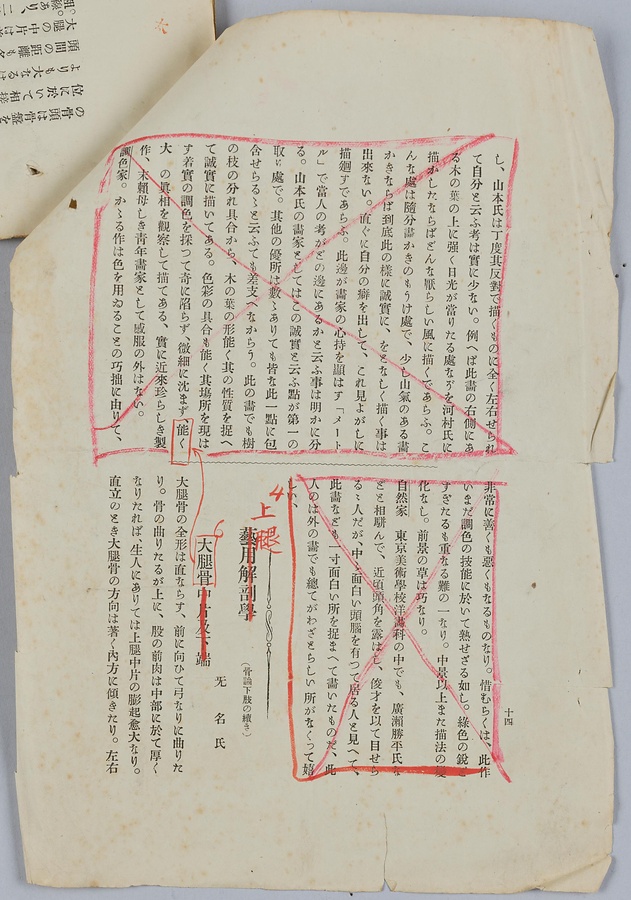 し、山本氏は丁度其反對で描くものに全く左右せられ
て自分と云ふ考は實に少ない。例へば此畫の右側にあ
る木の葉の上に强く日光が當りたる處などを河村氏に
描かしたならばどんな厭らしい風に描くであらふ。こ
んな處は隨分畫かきのもうけ處で、少し山氣のある畫
かきならば到底此の樣に誠實に、をとなしく描く事は
出來ない。直ぐに自分の癖を出して、これ見よがしに
描廻すであらふ。此邊が畫家の心持を顯はす「メート
ル」で當人の考がどの邊にあるかと云ふ事は明かに分
る。山本氏の畫家としてはこの誠實と云ふ點が第一の
取り處で。其他の優所は數々ありても皆な此一點に包
含せらるゝと云ふても差支へなからう。此の畫でも樹
の枝の分れ具合から、木の葉の形能く其の性質を捉へ
て誠實に描いてある。色彩の具合も能く其塲所を現は
す着實の調色を採つて奇に陷らず、微細に沈まず能く
大の眞相を觀察して描てある、實に近來珍らしき製
作、末賴母しき靑年畫家として感服の外はない。
調色家。かゝる作は色を用ゐることの巧拙に由りて、
十四
非常に善くも惡くもなるものなり。惜むらくは、此作
いまだ調色の技能に於いて熟せざる如し。綠色の銳に
すぎたるも重なる難の一なり。中景以上また描法の變
化なし。前景の草は巧なり。
自然家 東京美術學校洋畵科の中でも、廣瀨勝平氏な
どと相駢んで、近頃頭角を露はし、俊才を以て目せら
るゝ人だが、中々面白い頭腦を有つて居る人と見へて、
此畫なども一寸面白い所を捉まへて畫いたものだ、此
人のは外の畫でも總てがわざとらしい所がなくつて嬉
しい、
4
上腿
藝用解剖學
(骨論下肢の續き)
无名氏
6
大腿骨中片及下端
大腿骨の全形は直ならず、前に向ひて弓なりに曲りた
り。骨の曲りたるが上に、股の前肉は中部に於て厚く
なりたれば、生人にありては上腿中片の膨起愈大なり。
直立のとき大腿骨の方向は著く內方に傾きたり。左右
の骨頭は骨盤を
位に於いて相接
よりも大なるは
頭間の距離も多
大腿の中片は前